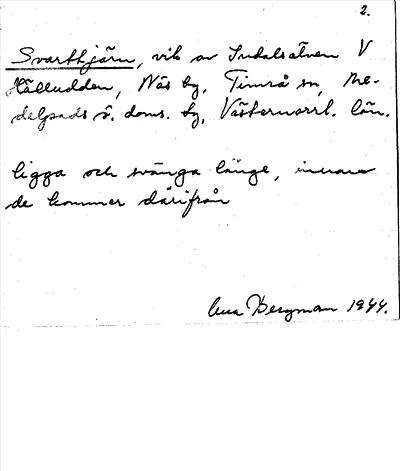 2.
Svarttjärn, vik av Indalsälven V
Hälludden, Näs by, Timrå sn, Me-
delpads ö. doms. tg, Västernorrl. län.
ligga och svänga länge, innan
de kommer därifrån
Bergman 1944.